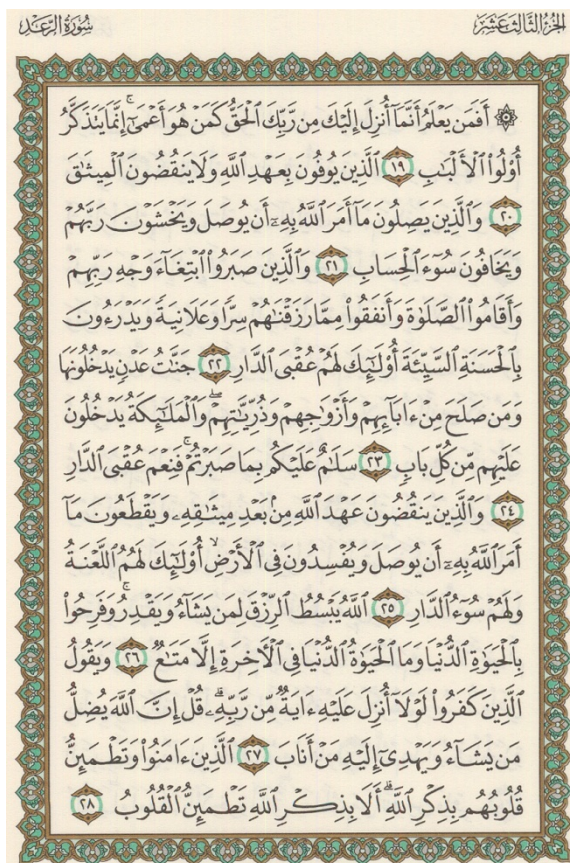 الجزء الثالث عشر
سورة الرعد
۞ أَفَمَن يَعْلَمُ أَنَّمَآ أُنزِلَ إِلَيْكَ مِن رَّبِّكَ ٱلْحَقُّ كَمَنْ هُوَ أَعْمَىٰٓۚ إِنَّمَا يَتَذَكَّرُ
أُوْلُواْ ٱلْأَلْبَٰبِ ١٩ ٱلَّذِينَ يُوفُونَ بِعَهْدِ ٱللَّهِ وَلَا يَنقُضُونَ ٱلْمِيثَٰقَ
٢٠ وَٱلَّذِينَ يَصِلُونَ مَآ أَمَرَ ٱللَّهُ بِهِۦٓ أَن يُوصَلَ وَيَخْشَوْنَ رَبَّهُمْ
وَيَخَافُونَ سُوٓءَ ٱلْحِسَابِ ٢١ وَٱلَّذِينَ صَبَرُواْ ٱبْتِغَآءَ وَجْهِ رَبِّهِمْ
وَأَقَامُواْ ٱلصَّلَوٰةَ وَأَنفَقُواْ مِمَّا رَزَقْنَٰهُمْ سِرًّا وَعَلَانِيَةً وَيَدْرَءُونَ
بِٱلْحَسَنَةِ ٱلسَّيِّئَةَ أُوْلَٰٓئِكَ لَهُمْ عُقْبَى ٱلدَّارِ ٢٢ جَنَّٰتُ عَدْنٍ يَدْخُلُونَهَا
وَمَن صَلَحَ مِنْ ءَابَآئِهِمْ وَأَزْوَٰجِهِمْ وَذُرِّيَّٰتِهِمْۖ وَٱلْمَلَٰٓئِكَةُ يَدْخُلُونَ
عَلَيْهِم مِّن كُلِّ بَابٍ ٢٣ سَلَٰمٌ عَلَيْكُم بِمَا صَبَرْتُمْۚ فَنِعْمَ عُقْبَى ٱلدَّارِ
٢٤ وَٱلَّذِينَ يَنقُضُونَ عَهْدَ ٱللَّهِ مِنۢ بَعْدِ مِيثَٰقِهِۦ وَيَقْطَعُونَ مَآ
أَمَرَ ٱللَّهُ بِهِۦٓ أَن يُوصَلَ وَيُفْسِدُونَ فِي ٱلْأَرْضِۙ أُوْلَٰٓئِكَ لَهُمُ ٱللَّعْنَةُ
وَلَهُمْ سُوٓءُ ٱلدَّارِ ٢٥ ٱللَّهُ يَبْسُطُ ٱلرِّزْقَ لِمَن يَشَآءُ وَيَقْدِرُۚ وَفَرِحُواْ
بِٱلْحَيَوٰةِ ٱلدُّنْيَا وَمَا ٱلْحَيَوٰةُ ٱلدُّنْيَا فِي ٱلْأٓخِرَةِ إِلَّا مَتَٰعٌ ٢٦ وَيَقُولُ
ٱلَّذِينَ كَفَرُواْ لَوْلَآ أُنزِلَ عَلَيْهِ ءَايَةٌ مِّن رَّبِّهِۦۗ قُلْ إِنَّ ٱللَّهَ يُضِلُّ
مَن يَشَآءُ وَيَهْدِيٓ إِلَيْهِ مَنْ أَنَابَ ٢٧ ٱلَّذِينَ ءَامَنُواْ وَتَطْمَئِنُّ
قُلُوبُهُم بِذِكْرِ ٱللَّهِۗ أَلَا بِذِكْرِ ٱللَّهِ تَطْمَئِنُّ ٱلْقُلُوبُ ٢٨